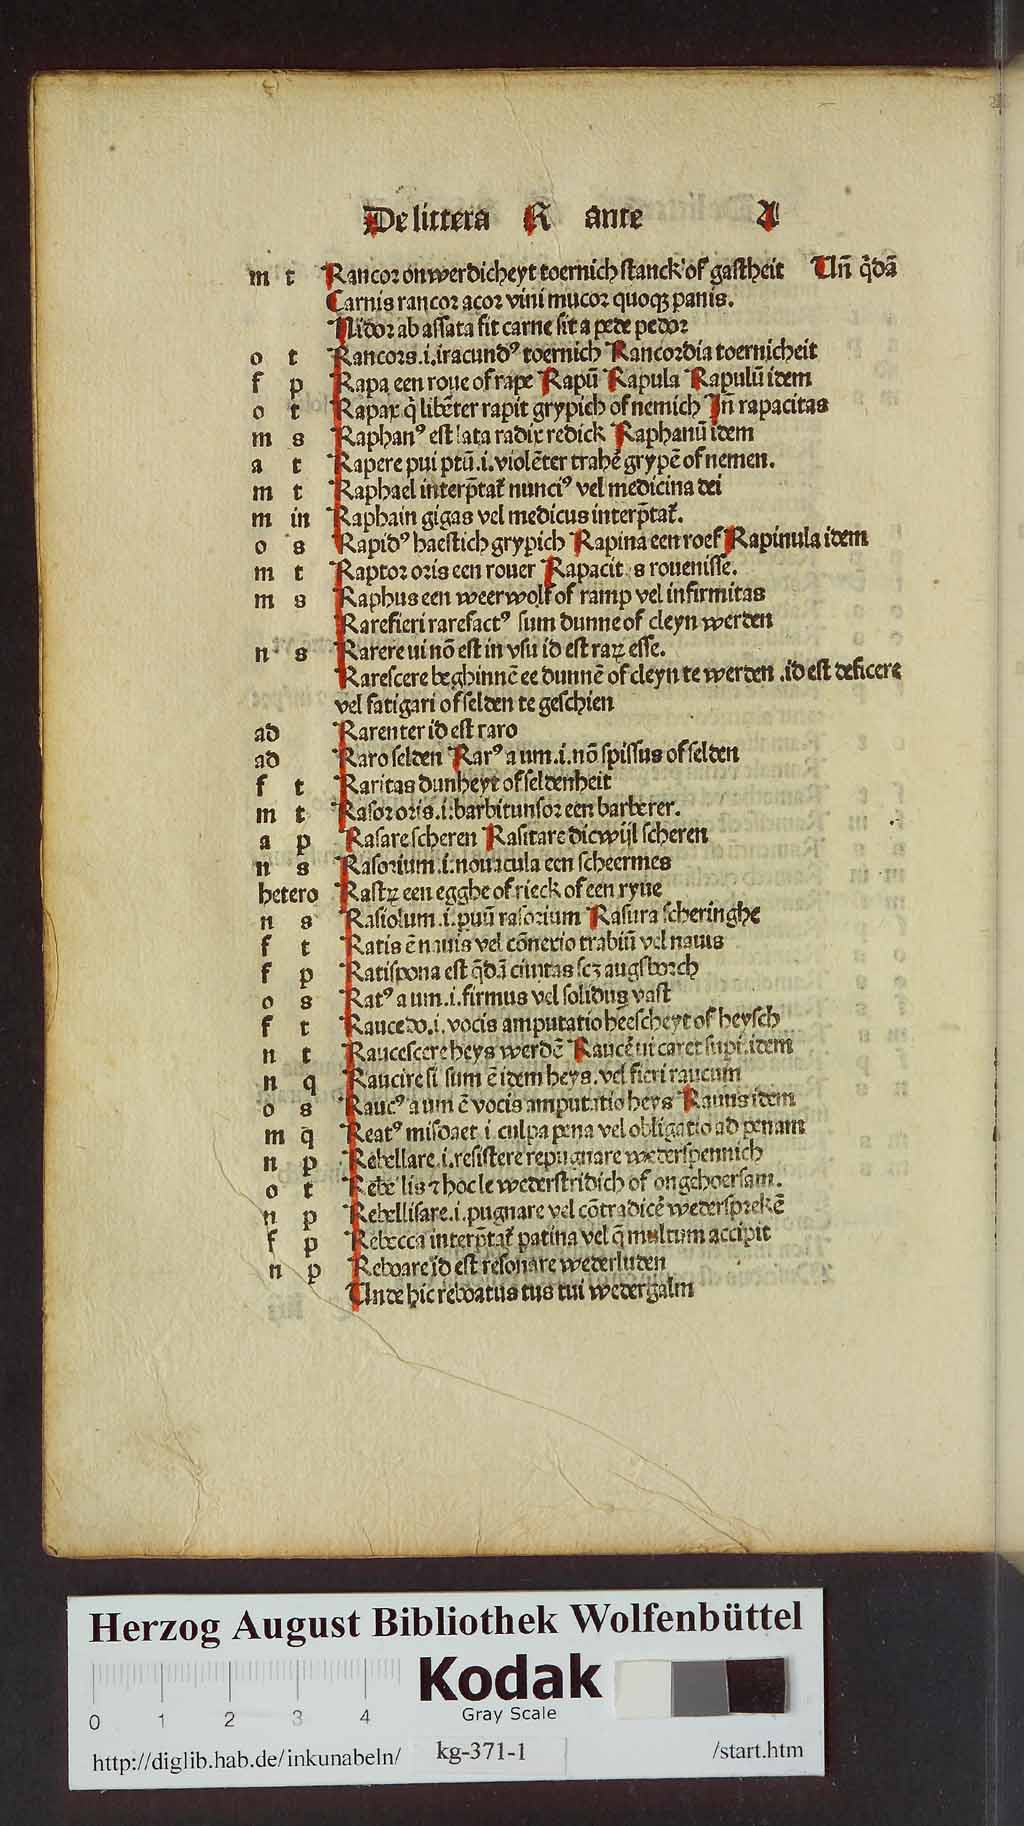 De littera R ante A
m t Rancor onwerdicheyt toernich stanck of gastheit Uñ q̃dã
Carnis rancor acor vini mucor quoqꝫ panis.
Nidor ab assata fit carne sit a pede pedor
o t Rancors .i. iracundꝰ toernich Rancordia toernicheit
f p Rapa een roue of rape Rapũ Rapula Rapulũ idem
o t Rapax q̇ libẽter rapit grypich of nemich Iñ rapacitas
m s Raphanꝰ est lata radix redick Raphanũ idem
a t Rapere pui ptũ .i. violẽter trahe᷑ grypẽ of nemen.
m t Raphael interp̃tat᷑ nunciꝰ vel medicina dei
m in Raphain gigas vel medicus interp̃tat᷑.
o s Rapidꝰ haestich grypich Rapina een roef Rapinula idem
m t Raptor oris een rouer Rapacit s rouenisse.
m s Raphus een weerwolf of ramp vel infirmitas
Rarefieri rarefactꝰ sum dunne of cleyn werden
n s Rarere ui nõ est in vsu id est raꝝ esse.
Rarescere beghinnẽ ee dunnẽ of cleyn te werden .id est deficere
vel fatigari of selden te geschien
ad Rarenter id est raro
ad Raro selden Rarꝰ a um .i. nõ spissus of selden
f t Raritas dunheyt of seldenheit
m t Rasor oris .i. barbitunsor een barberer.
a p Rasare scheren Rasitare dicwijl scheren
n s Rasorium .i. nouacula een scheermes
hetero Rastꝝ een egghe of rieck of een ryue
n s Rasiolum .i. puũ rasorium Rasura scheringhe
f t Ratis ẽ nauis vel cõnexio trabiũ vel nauis
f p Ratispona est q̃dã ciuitas scꝫ augsborch
o s Ratꝰ a um .i. firmus vel solidus vast
f t Raucedo .i. vocis amputatio heescheyt of heysch
n t Raucescere heys werdẽ Rauce᷑ ui caret supi᷑. idem
n q Raucire si sum ẽ idem heys. vel fieri raucum
o s Raucꝰ a um ẽ vocis amputatio heys Rauus idem
m q Reatꝰ misdaet .i. culpa pena vel obligatio ad penam
n p Rebellare .i. resistere repugnare wederspennich
o t Rebellis ⁊ hoc le wederstridich of ongehoersam.
n p Rebellisare .i. pugnare vel cõtradice᷑ wedersprekẽ
f p Rebecca interp̃tat᷑ patina vel q̃ multum accipit
n p Reboare id est resonare wederluden
Unde hic reboatus tus tui wedergalm
Herzog August Bibliothek Wolfenbüttel
Kodak
Gray Scale
0 1 2 3 4
http://diglib.hab.de/inkunabeln/ kg-371-1 /start.htm